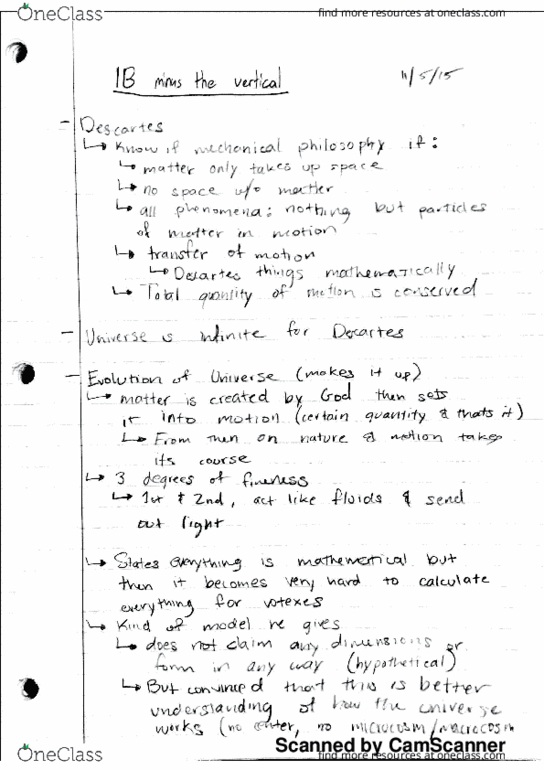 OneClass
find more resources at oneclass.com
1B minus the vertical
11/5/15
- Descartes
↳ Know if mechanical philosophy if:
↳ matter only takes up space
↳ no space w/o matter
↳ all phenomena: nothing but particles
of matter in motion
↳ transfer of motion
↳ Descartes things mathematically
↳ Total quantity of motion is conserved
- Universe is infinite for Descartes
- Evolution of Universe (makes it up)
↳ matter is created by God then sets
it into motion (certain quantity & thats it)
↳ From then on nature & motion takes
its course
↳ 3 degrees of fineness
↳ 1st & 2nd, act like fluids & send
out light
↳ States everything is mathematical but
then it becomes very hard to calculate
everything for votexes
↳ Kind of model he gives
↳ does not claim any dimensions or
form in any way (hypothetical)
↳ But convinced that this is better
understanding of how the universe
works (no center, no microcosm/macrocosm
Scanned by CamScanner
OneClass
find more resources at oneclass.com